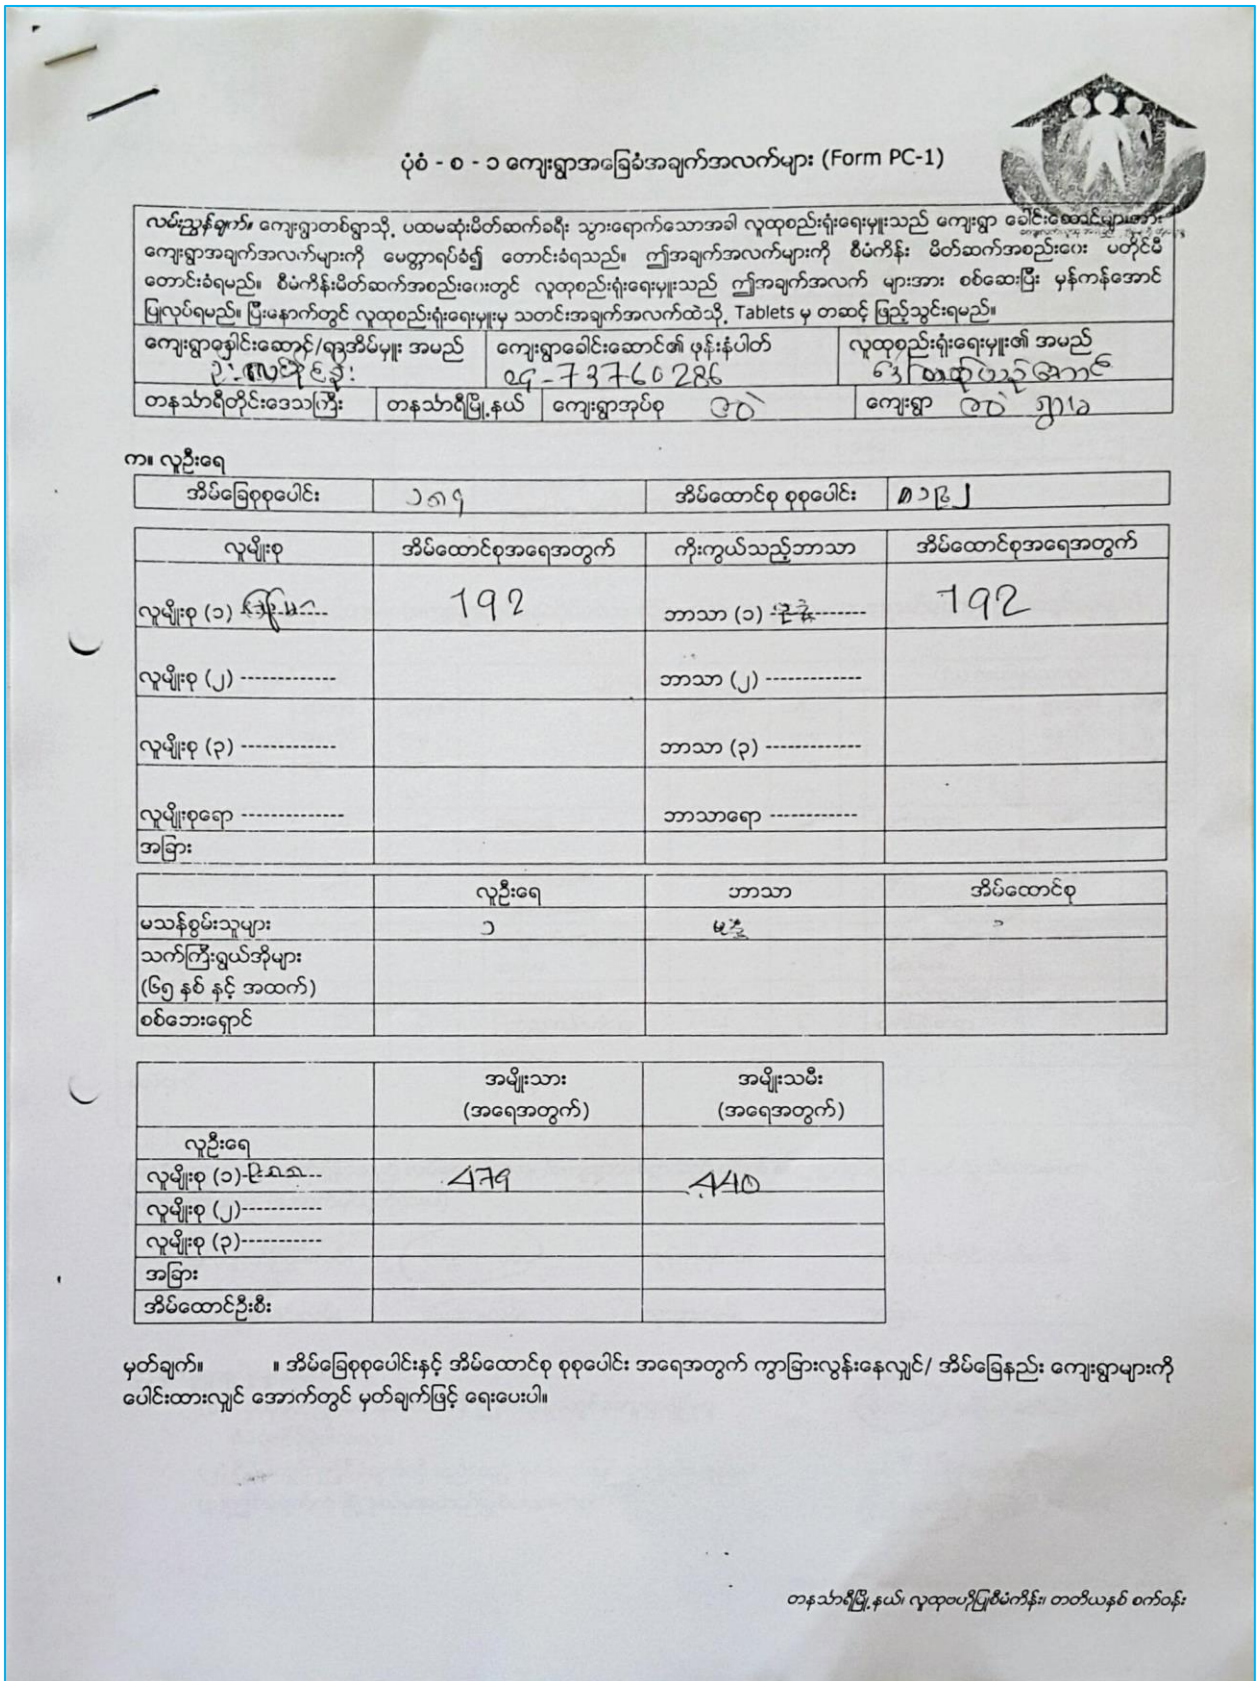 ပုံစံ - စ - ၁ ကျေးရွာအခြေခံအချက်အလက်များ (Form PC-1)
လမ်းညွှန်ချက်။ ကျေးရွာတစ်ရွာသို့ ပထမဆုံးမိတ်ဆက်ခရီး သွားရောက်သောအခါ လူထုစည်းရုံးရေးမှူးသည် ကျေးရွာ ခေါင်းဆောင်များအား
ကျေးရွာအချက်အလက်များကို မေတ္တာရပ်ခံ၍ တောင်းခံရသည်။ ဤအချက်အလက်များကို စီမံကိန်း မိတ်ဆက်အစည်းဝေး မတိုင်မီ
တောင်းခံရမည်။ စီမံကိန်းမိတ်ဆက်အစည်းဝေးတွင် လူထုစည်းရုံးရေးမှူးသည် ဤအချက်အလက် များအား စစ်ဆေးပြီး မှန်ကန်အောင်
ပြုလုပ်ရမည်။ ပြီးနောက်တွင် လူထုစည်းရုံးရေးမှူးမှ သတင်းအချက်အလက်ထဲသို့ Tablets မှ တဆင့် ဖြည့်သွင်းရမည်။
ကျေးရွာခေါင်းဆောင်/ရာအိမ်မှူး အမည် ကျေးရွာခေါင်းဆောင်၏ ဖုန်းနံပါတ် လူထုစည်းရုံးရေးမှူး၏ အမည်
09-73760286
တနင်္သာရီတိုင်းဒေသကြီး တနင်္သာရီမြို့နယ် ကျေးရွာအုပ်စု ကျေးရွာ
က။ လူဦးရေ
အိမ်ခြေစုစုပေါင်း ၁၈၄ အိမ်ထောင်စု စုစုပေါင်း ၁၉၂
လူမျိုးစု အိမ်ထောင်စုအရေအတွက် ကိုးကွယ်သည့်ဘာသာ အိမ်ထောင်စုအရေအတွက်
လူမျိုးစု (၁) 192 ဘာသာ (၁) 192
လူမျိုးစု (၂) ------------- ဘာသာ (၂) -------------
လူမျိုးစု (၃) ------------- ဘာသာ (၃) -------------
လူမျိုးစုရော -------------- ဘာသာရော ------------
အခြား
လူဦးရေ ဘာသာ အိမ်ထောင်စု
မသန်စွမ်းသူများ ၁ ၁
သက်ကြီးရွယ်အိုများ
(၆၅ နှစ် နှင့် အထက်)
စစ်ဘေးရှောင်
အမျိုးသား အမျိုးသမီး
(အရေအတွက်) (အရေအတွက်)
လူဦးရေ
လူမျိုးစု (၁) 479 440
လူမျိုးစု (၂)-----------
လူမျိုးစု (၃)-----------
အခြား
အိမ်ထောင်ဦးစီး
မှတ်ချက်။ ။ အိမ်ခြေစုစုပေါင်းနှင့် အိမ်ထောင်စု စုစုပေါင်း အရေအတွက် ကွာခြားလွန်းနေလျှင်/ အိမ်ခြေနည်း ကျေးရွာများကို
ပေါင်းထားလျှင် အောက်တွင် မှတ်ချက်ဖြင့် ရေးပေးပါ။
တနင်္သာရီမြို့နယ်၊ လူထုဗဟိုပြုစီမံကိန်း၊ တတိယနှစ် စက်ဝန်း